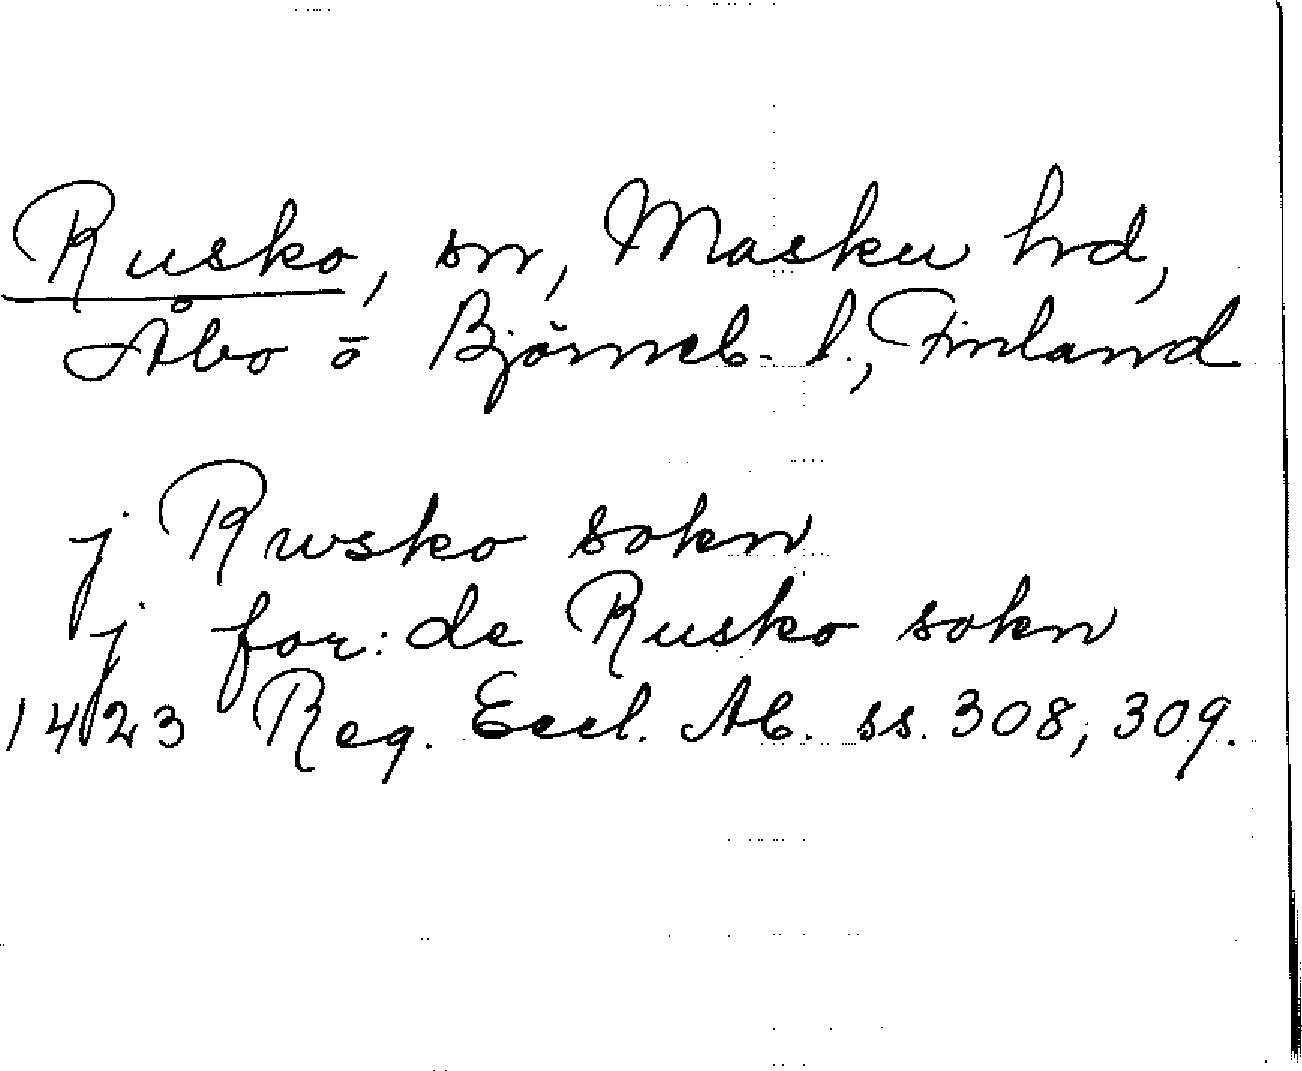 Rusko, sn, Masku hd,
Åbo o Björneb. l., Finland
j Rwsko sokn
j for: de Rusko sokn
1423 Reg. Eccl. Ab. ss. 308, 309.